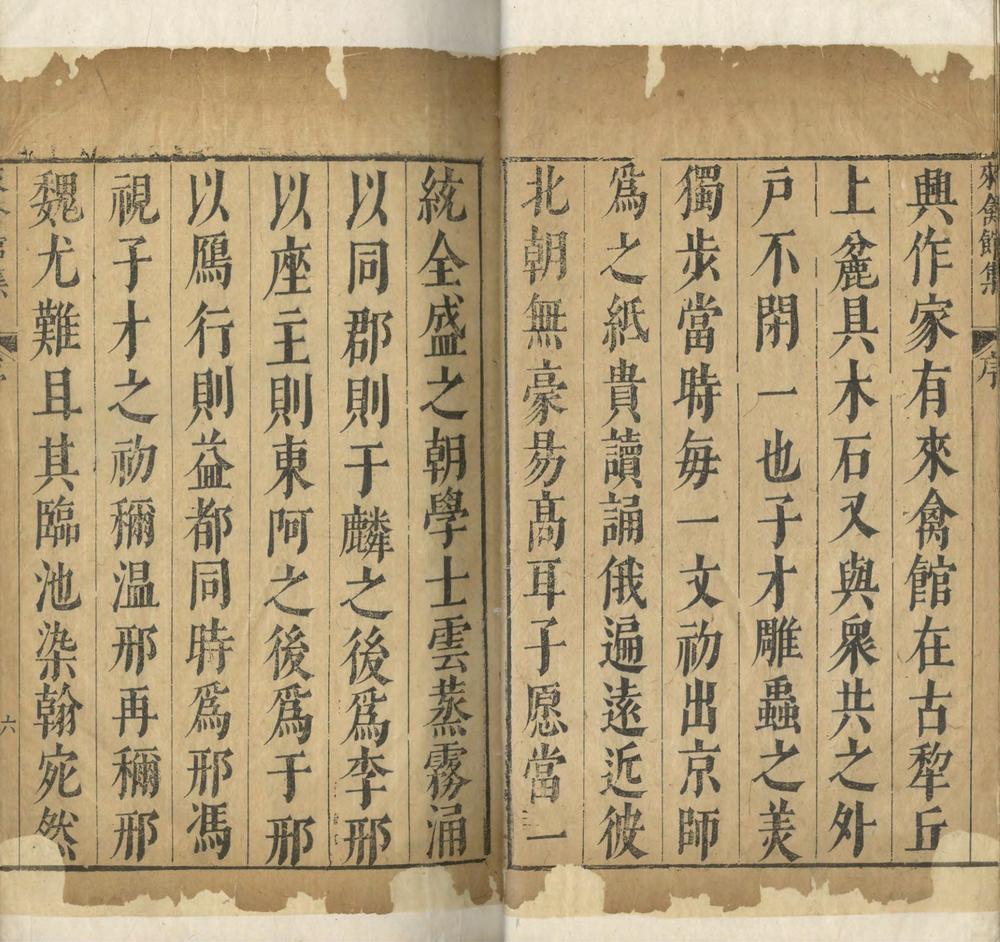 來禽館集
序
興作家有來禽館在古犂丘
上麄具木石又與衆共之外
戸不閉一也子才雕蟲之美
獨步當時每一文初出京師
爲之紙貴讀誦俄遍遠近彼
北朝無豪昜髙耳子愿當一
統全盛之朝學士雲蒸霧涌
以同郡則于麟之後爲李邢
以座主則東阿之後爲于邢
以鴈行則益都同時爲邢馮
視子才之初稱温邢再稱邢
魏尤難且其臨池染翰宛然
六